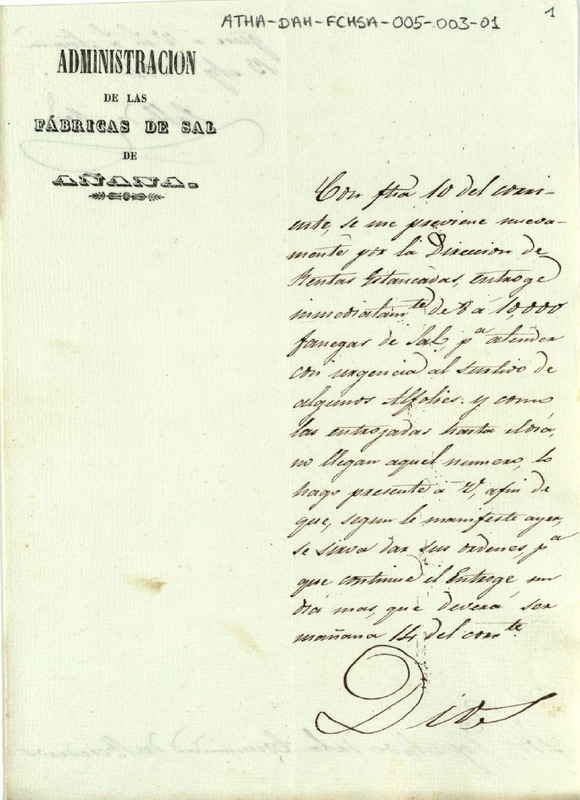 ATHA-DAH-FCHSA-005-003-01
1
ADMINISTRACION
DE LAS
FÁBRICAS DE SAL
DE
AÑANA.
Con fha 10 del corri-
ente, se me previene nueva-
mente por la Direccion de
Rentas Estancadas, entroge
inmediatamte de 8 á 10,000
fanegas de Sal, pa atender
con urgencia al surtido de
algunos Alfolies: y como
las entrojadas hasta el dia,
no llegan aquel numero, lo
hago presente á V, afin de
que, segun le manifeste ayer,
se sirva dar sus ordenes, pa
que continue el Entroge un
dia mas, que deverá ser
mañana 14 del corrte
Dios